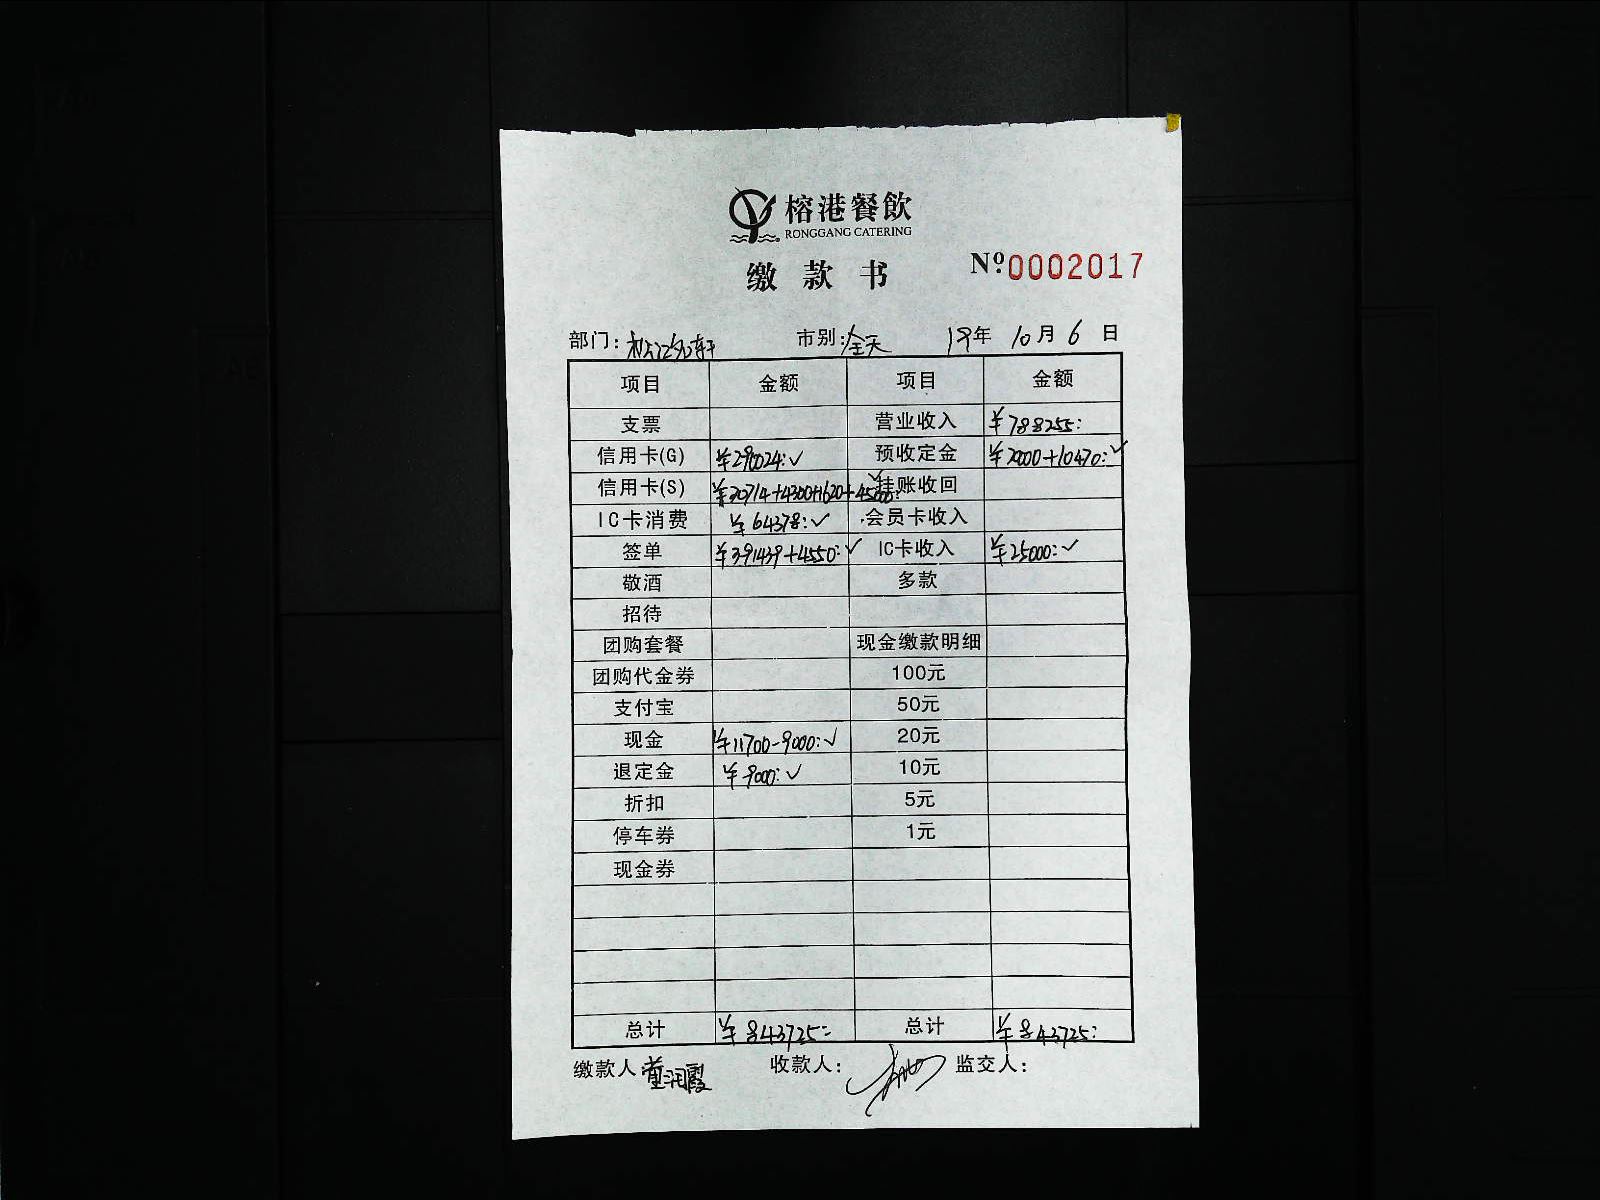 榕港餐飲
RONGGANG CATERING
缴款书
Nº:0002017
部门: 市别:全天 19年 10月 6日
项目 金额 项目 金额
支票 营业收入 ¥788255:
信用卡(G) ¥290024:✓ 预收定金 ¥20000+10470:✓
信用卡(S) ¥30714+4300+1620+45000:✓ 挂账收回
IC卡消费 ¥64378:✓ 会员卡收入
签单 ¥391439+4550:✓ IC卡收入 ¥25000:✓
敬酒 多款
招待
团购套餐 现金缴款明细
团购代金券 100元
支付宝 50元
现金 ¥11700-9000:✓ 20元
退定金 ¥9000:✓ 10元
折扣 5元
停车券 1元
现金券
总计 ¥843725: 总计 ¥843725:
缴款人:董润霞 收款人: 监交人: